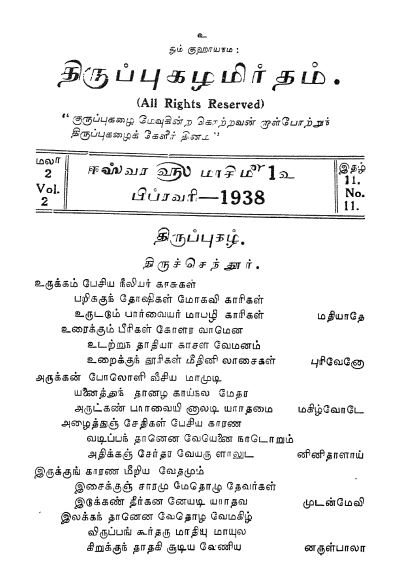 உ
ஓம் குஹாயநம:
திருப்புகழமிர்தம்.
(All Rights Reserved)
“குருப்புகழை மேவுகின்ற கொற்றவன் றாள்போற்றுந்
திருப்புகழைக் கேளீர் தினம்”
மலர்
2
Vol.
2
ஈஸ்வர ௵ மாசி௴ 1௳
பிப்ரவரி—1938
இதழ்
11.
No.
11.
திருப்புகழ்.
திருச்செந்தூர்.
உருக்கம் பேசிய நீலியர் காசுகள்
பறிக்குந் தோஷிகள் மோகவி காரிகள்
உருட்டும் பார்வையர் மாபழி காரிகள் மதியாதே
உரைக்கும் வீரிகள் கோளர வாமென
உடற்றுந் தாதியர் காசள வேமனம்
உறைக்குந் தூரிகள் மீதினி லாசைகள் புரிவேனோ
அருக்கன் போலொளி வீசிய மாமுடி
யணைத்துந் தானழ காய்நல மேதர
அருட்கண் பார்வையி னாலடி யார்தமை மகிழ்வோடே
அழைத்துஞ் சேதிகள் பேசிய காரண
வடிப்பந் தானென வேயெனை நாடொறும்
அதிக்கஞ் சேர்தர வேயரு ளாலுட னினிதாளாய்
இருக்குங் காரண மீறிய வேதமும்
இசைக்குஞ் சாரமு மேதொழு தேவர்கள்
இடுக்கண் தீர்கன னேயடி யார்தவ முடன்மேவி
இலக்கந் தானென வேதொழ வேமகிழ்
விருப்பங் கூர்தரு மாதியு மாயுல
கிறுக்குந் தாதகி சூடிய வேணிய னருள்பாலா